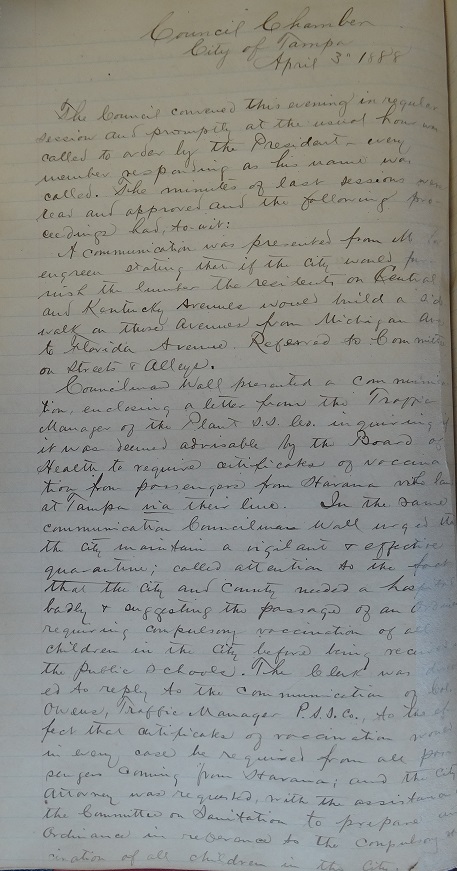 Council Chamber
City of Tampa
April 3" 1888
The Council convened this evening in regular
session and promptly at the usual hour was
called to order by the President – every
member responding as his name was
called. The minutes of last sessions were
read and approved and the following pro-
ceedings had, to-wit:
A communication was presented from
stating that if the city would
the lumber the residents on Central
and Kentucky Avenues would build a side
walk on those Avenues from Michigan
to Florida Avenue. Referred to Committee
on Streets & Alleys.
Councilman Wall presented a
enclosing a letter from the Traffic
Manager of the Plant S.S. Co. inquiring
it was deemed advisable by the Board of
Health to require certificates of vaccina
tion from passengers from Havana
at Tampa via their line. In the same
communication Councilman Wall urged
the city maintain a vigilant & effective
quarantine; called attention to the fact
that the City and County needed a
badly & suggesting the passage of an
requiring compulsory vaccination of
children in the City before being
the public schools. The Clerk was
ed to reply to the communication of
Owens, Traffic Manager P.S.S. Co., to the ef
fect that certificates of vaccination would
in every case be required from all pas
sengers coming from Havana; and the City
Attorney was requested, with the
the Committee on Sanitation to prepare an
Ordinance in reference to the compulsory
cination of all children in the City.